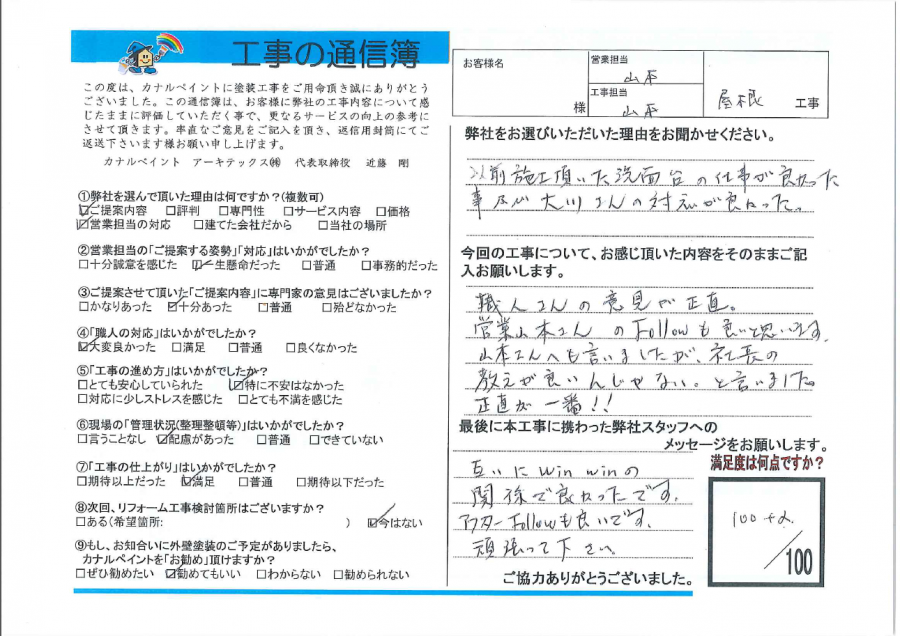 工事の通信簿
この度は、カナルペイントに塗装工事をご用命頂き誠にありがとう
ございました。この通信簿は、お客様に弊社の工事内容について感
じたままに評価していただく事で、更なるサービスの向上の参考に
させて頂きます。率直なご意見をご記入を頂き、返信用封筒にてご
返送下さいます様お願い申し上げます。
カナルペイント アーキテックス㈱ 代表取締役 近藤 剛
①弊社を選んで頂いた理由は何ですか？(複数可)
☑ご提案内容 □評判 □専門性 □サービス内容 □価格
☑営業担当の対応 □建てた会社だから □当社の場所
②営業担当の「ご提案する姿勢」「対応」はいかがでしたか？
□十分誠意を感じた ☑一生懸命だった □普通 □事務的だった
③ご提案させて頂いた「ご提案内容」に専門家の意見はございましたか？
□かなりあった ☑十分あった □普通 □殆どなかった
④「職人の対応」はいかがでしたか？
☑大変良かった □満足 □普通 □良くなかった
⑤「工事の進め方」はいかがでしたか？
□とても安心していられた ☑特に不安はなかった
□対応に少しストレスを感じた □とても不満を感じた
⑥現場の「管理状況(整理整頓等)」はいかがでしたか？
□言うことなし ☑配慮があった □普通 □できていない
⑦「工事の仕上がり」はいかがでしたか？
□期待以上だった ☑満足 □普通 □期待以下だった
⑧次回、リフォーム工事検討箇所はございますか？
□ある(希望箇所: ) ☑今はない
⑨もし、お知合いに外壁塗装のご予定がありましたら、
カナルペイントを「お勧め」頂けますか？
□ぜひ勧めたい ☑勧めてもいい □わからない □勧められない
お客様名
様
営業担当
山本
工事担当
山本
屋根 工事
弊社をお選びいただいた理由をお聞かせください。
以前施工頂いた洗面台の仕事が良かった
事及び大川さんの対応が良かった。
今回の工事について、お感じ頂いた内容をそのままご記
入お願いします。
職人さんの意見が正直。
営業山本さんのFollowも良いと思います。
山本さんへも言いましたが、社長の
教えが良いんじゃない。と言いました。
正直が一番！！
最後に本工事に携わった弊社スタッフへの
メッセージをお願いします。
互いにWin winの
関係で良かったです。
アフターFollowも良いです。
頑張って下さい。
満足度は何点ですか？
100+α.
／100
ご協力ありがとうございました。